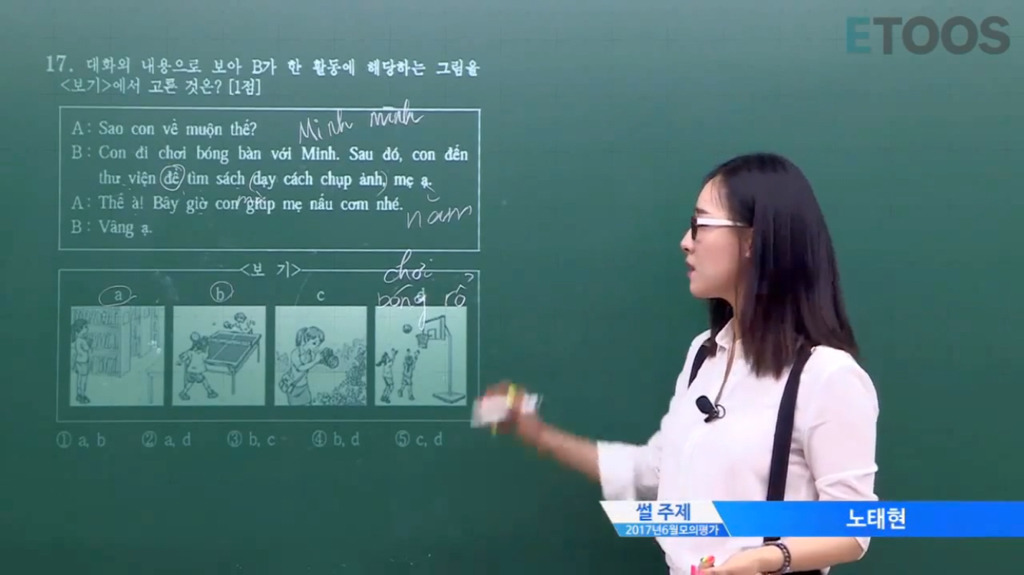 ETOOS
17. 대화의 내용으로 보아 B가 한 활동에 해당하는 그림을
<보기>에서 고른 것은? [1점]
A: Sao con về muộn thế?
Minh mình
B: Con đi chơi bóng bàn với Minh. Sau đó, con đến
thư viện để tìm sách dạy cách chụp ảnh, mẹ ạ.
A: Thế à! Bây giờ con giúp mẹ nấu cơm nhé.
B: Vâng ạ.
<보 기>
chơi
bóng rổ
a
b
c
① a, b
② a, d
③ b, c
④ b, d
⑤ c, d
썰 주제
2017년6월모의평가
노태현